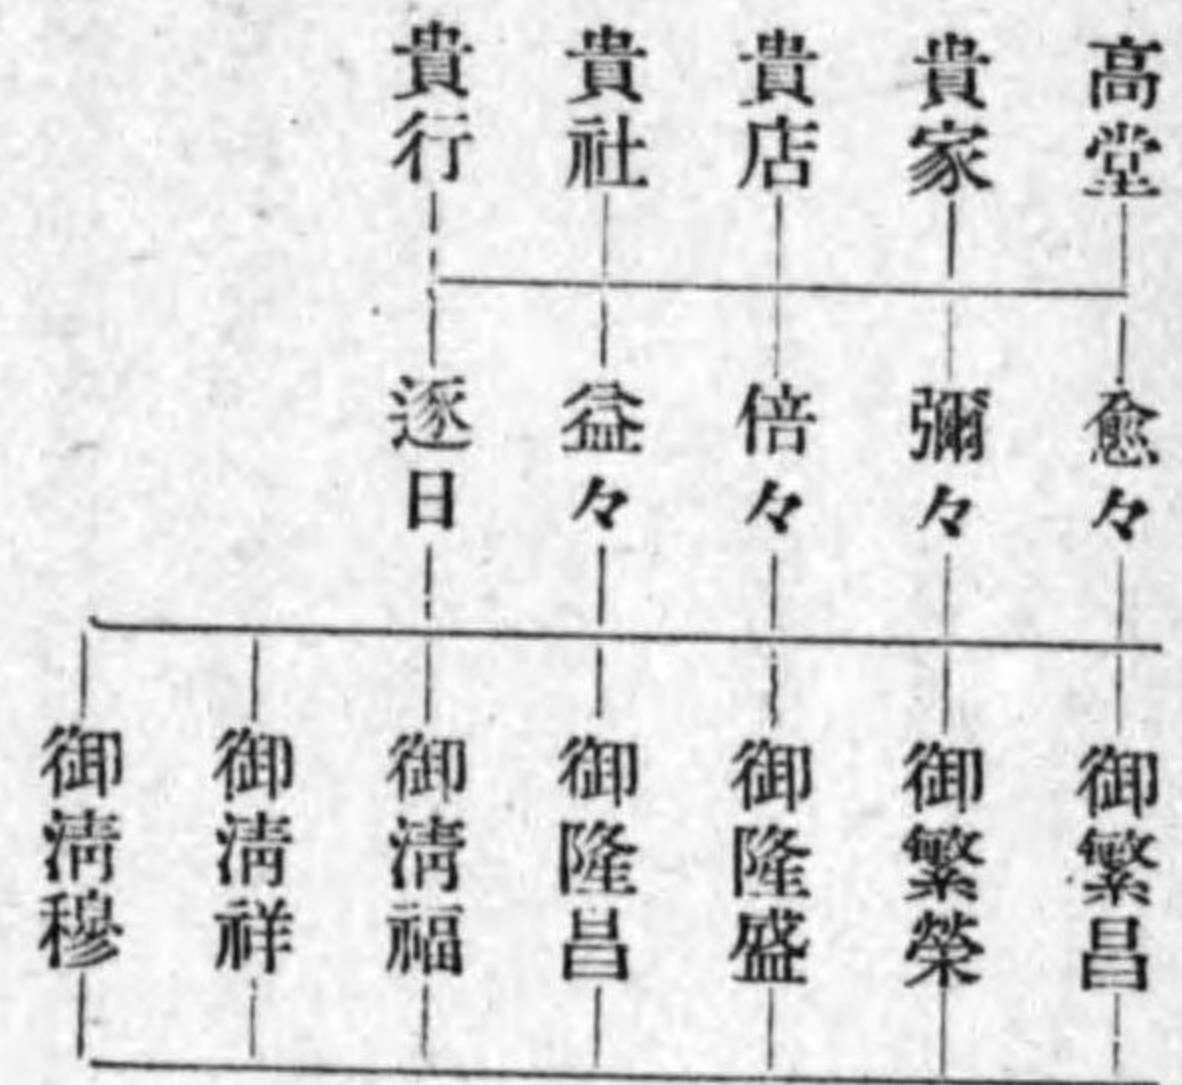 高堂
貴家
貴店
貴社
貴行
愈々
彌々
倍々
益々
逐日
御繁昌
御繁榮
御隆盛
御隆昌
御淸福
御淸祥
御淸穆